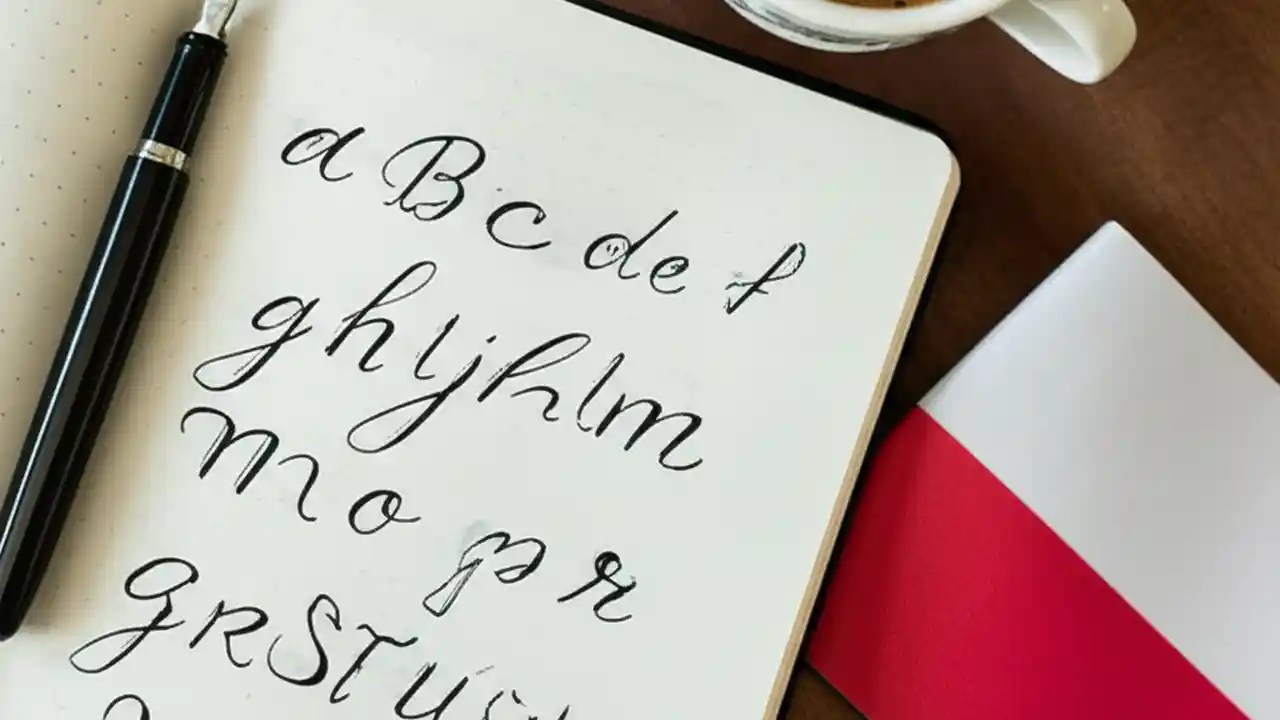 a B c d e f
g h i j h l m
m o p r
g R S T U